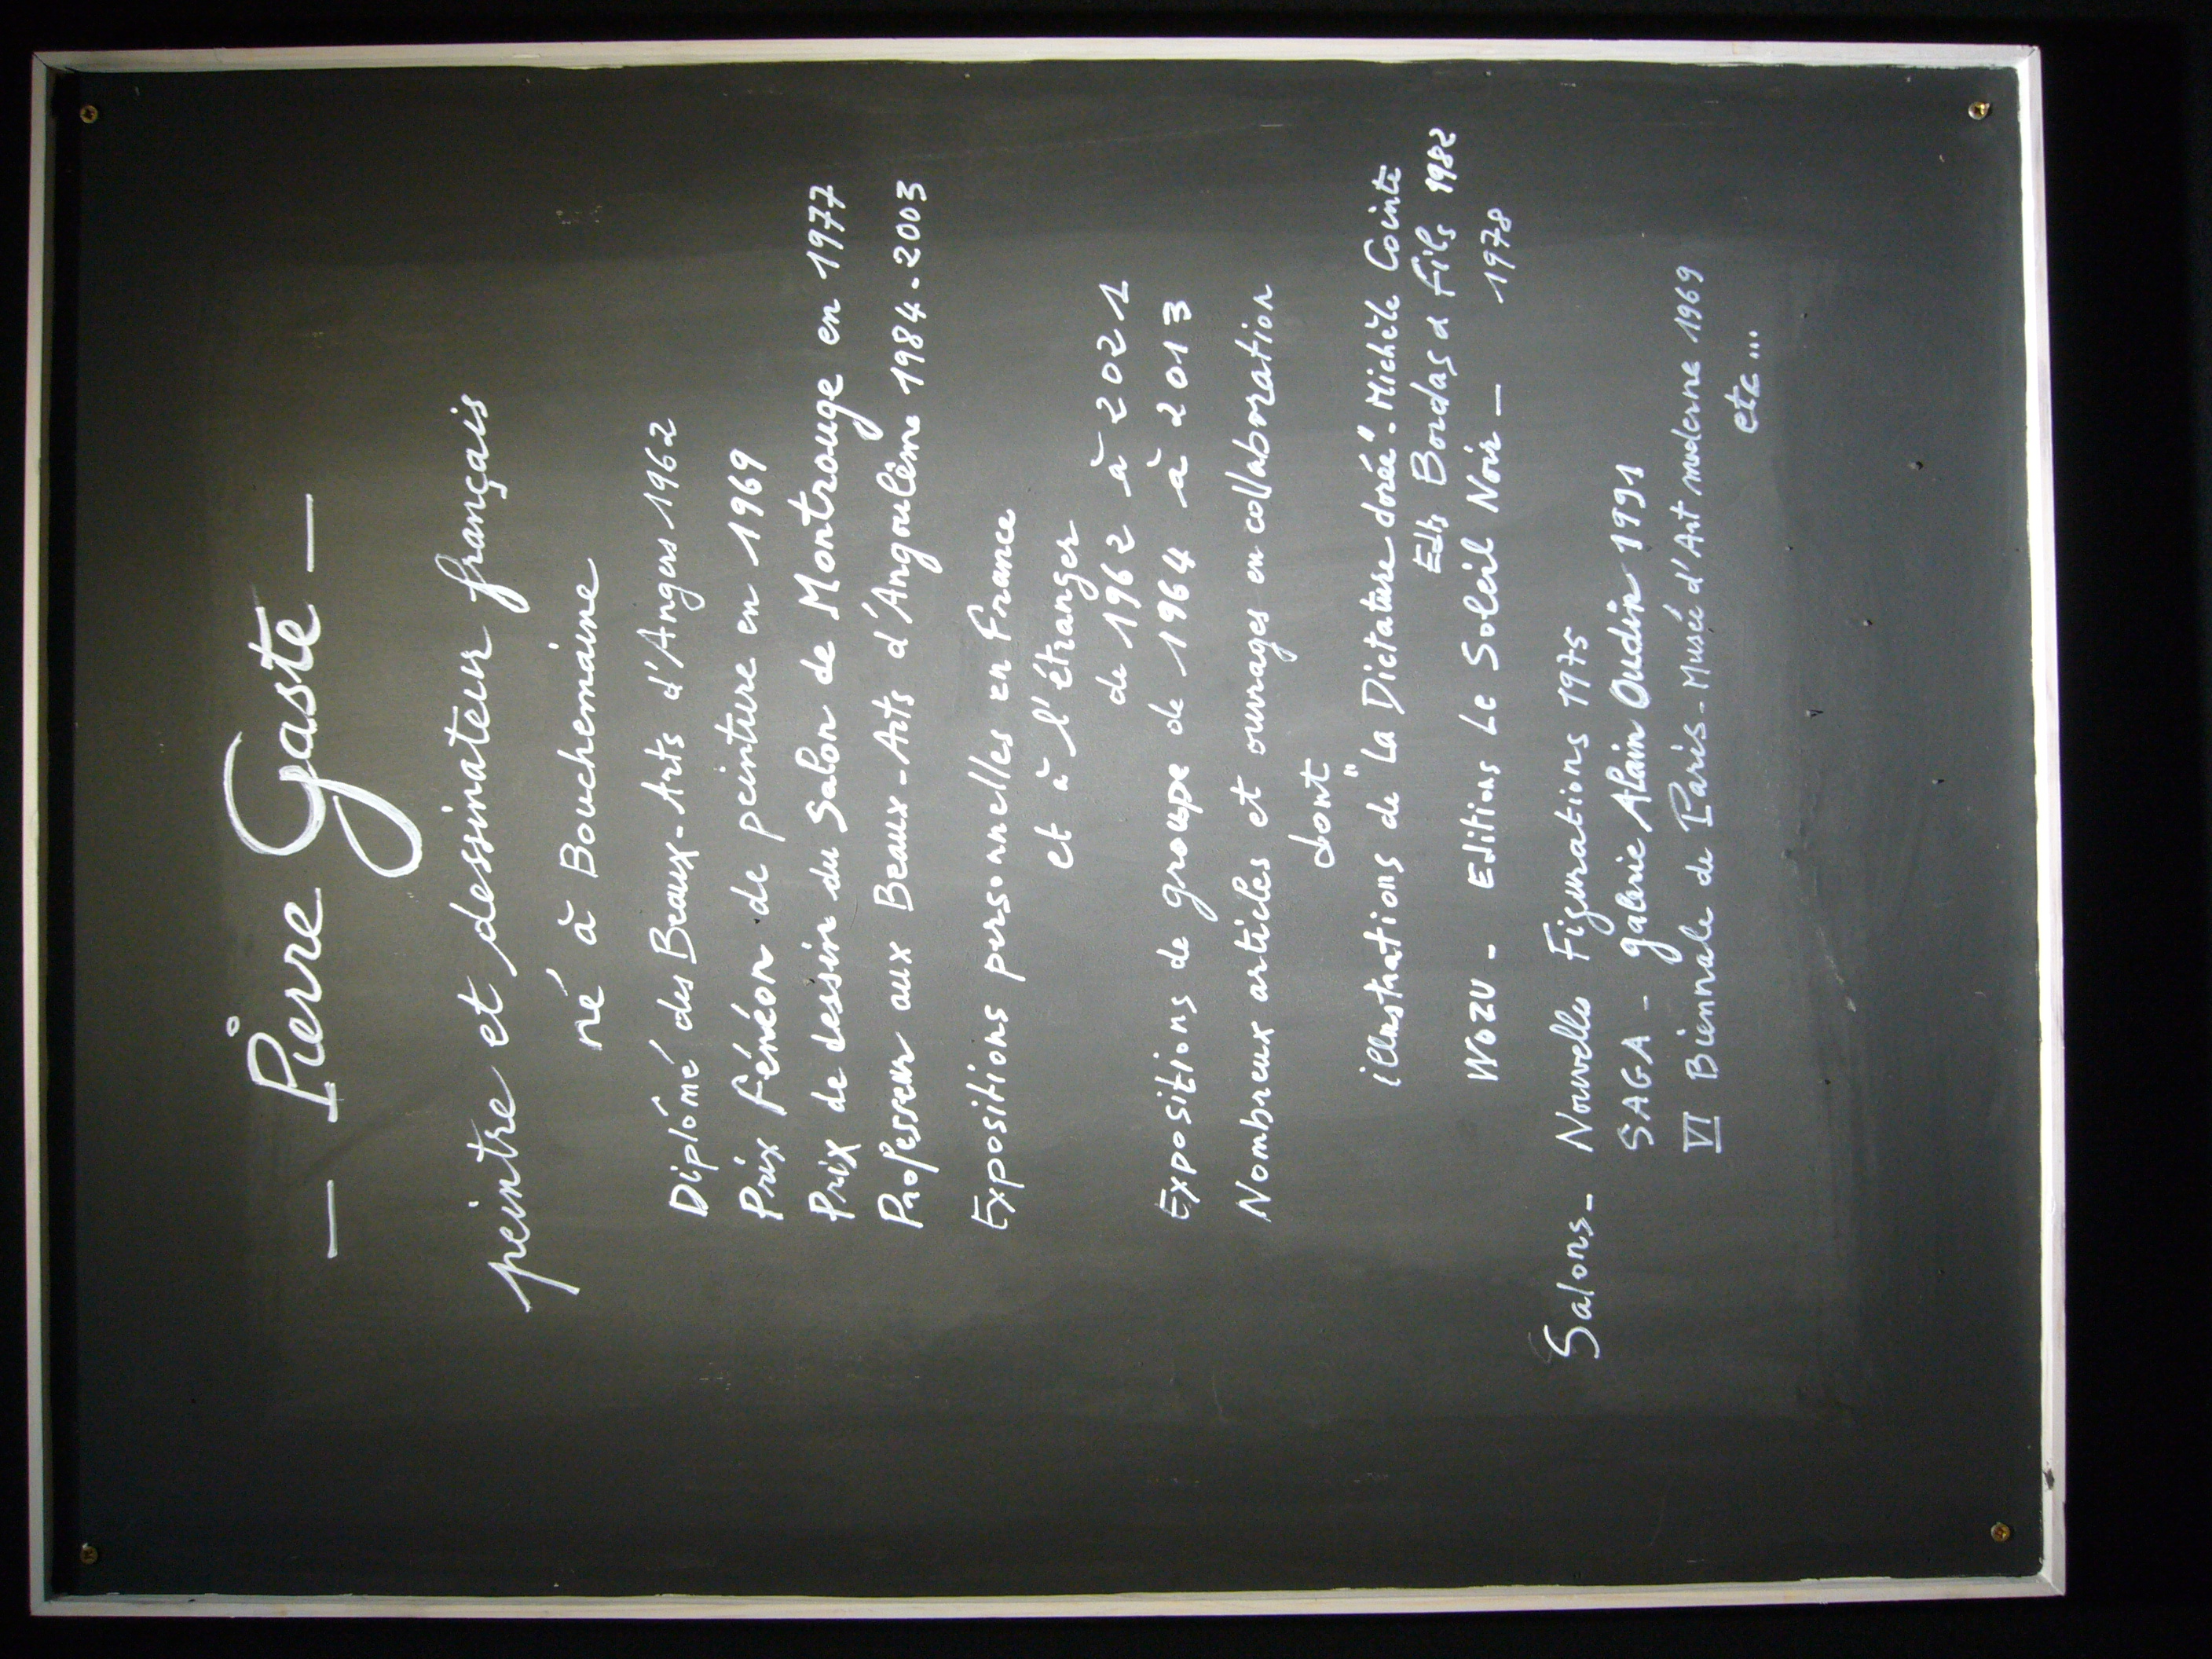 — Pierre Gaste —
peintre et dessinateur français
né à Bouchemaine
Diplômé des Beaux-Arts d'Angers 1962
Prix Fénéon de peinture en 1969
Prix de dessin du Salon de Montrouge en 1977
Professeur aux Beaux-Arts d'Angoulême 1984-2003
Expositions personnelles en France
et à l'étranger
de 1962 à 2021
Expositions de groupe de 1964 à 2013
Nombreux articles et ouvrages en collaboration
dont
illustrations de "La Dictature dorée"-Michèle Cointe
Edts Bordas & Fils 1982
WOZU - Editions Le Soleil Noir — 1978
Salons- Nouvelles Figurations 1975
SAGA - galerie Alain Oudin 1991
VI Biennale de Paris-Musée d'Art moderne 1969
etc...